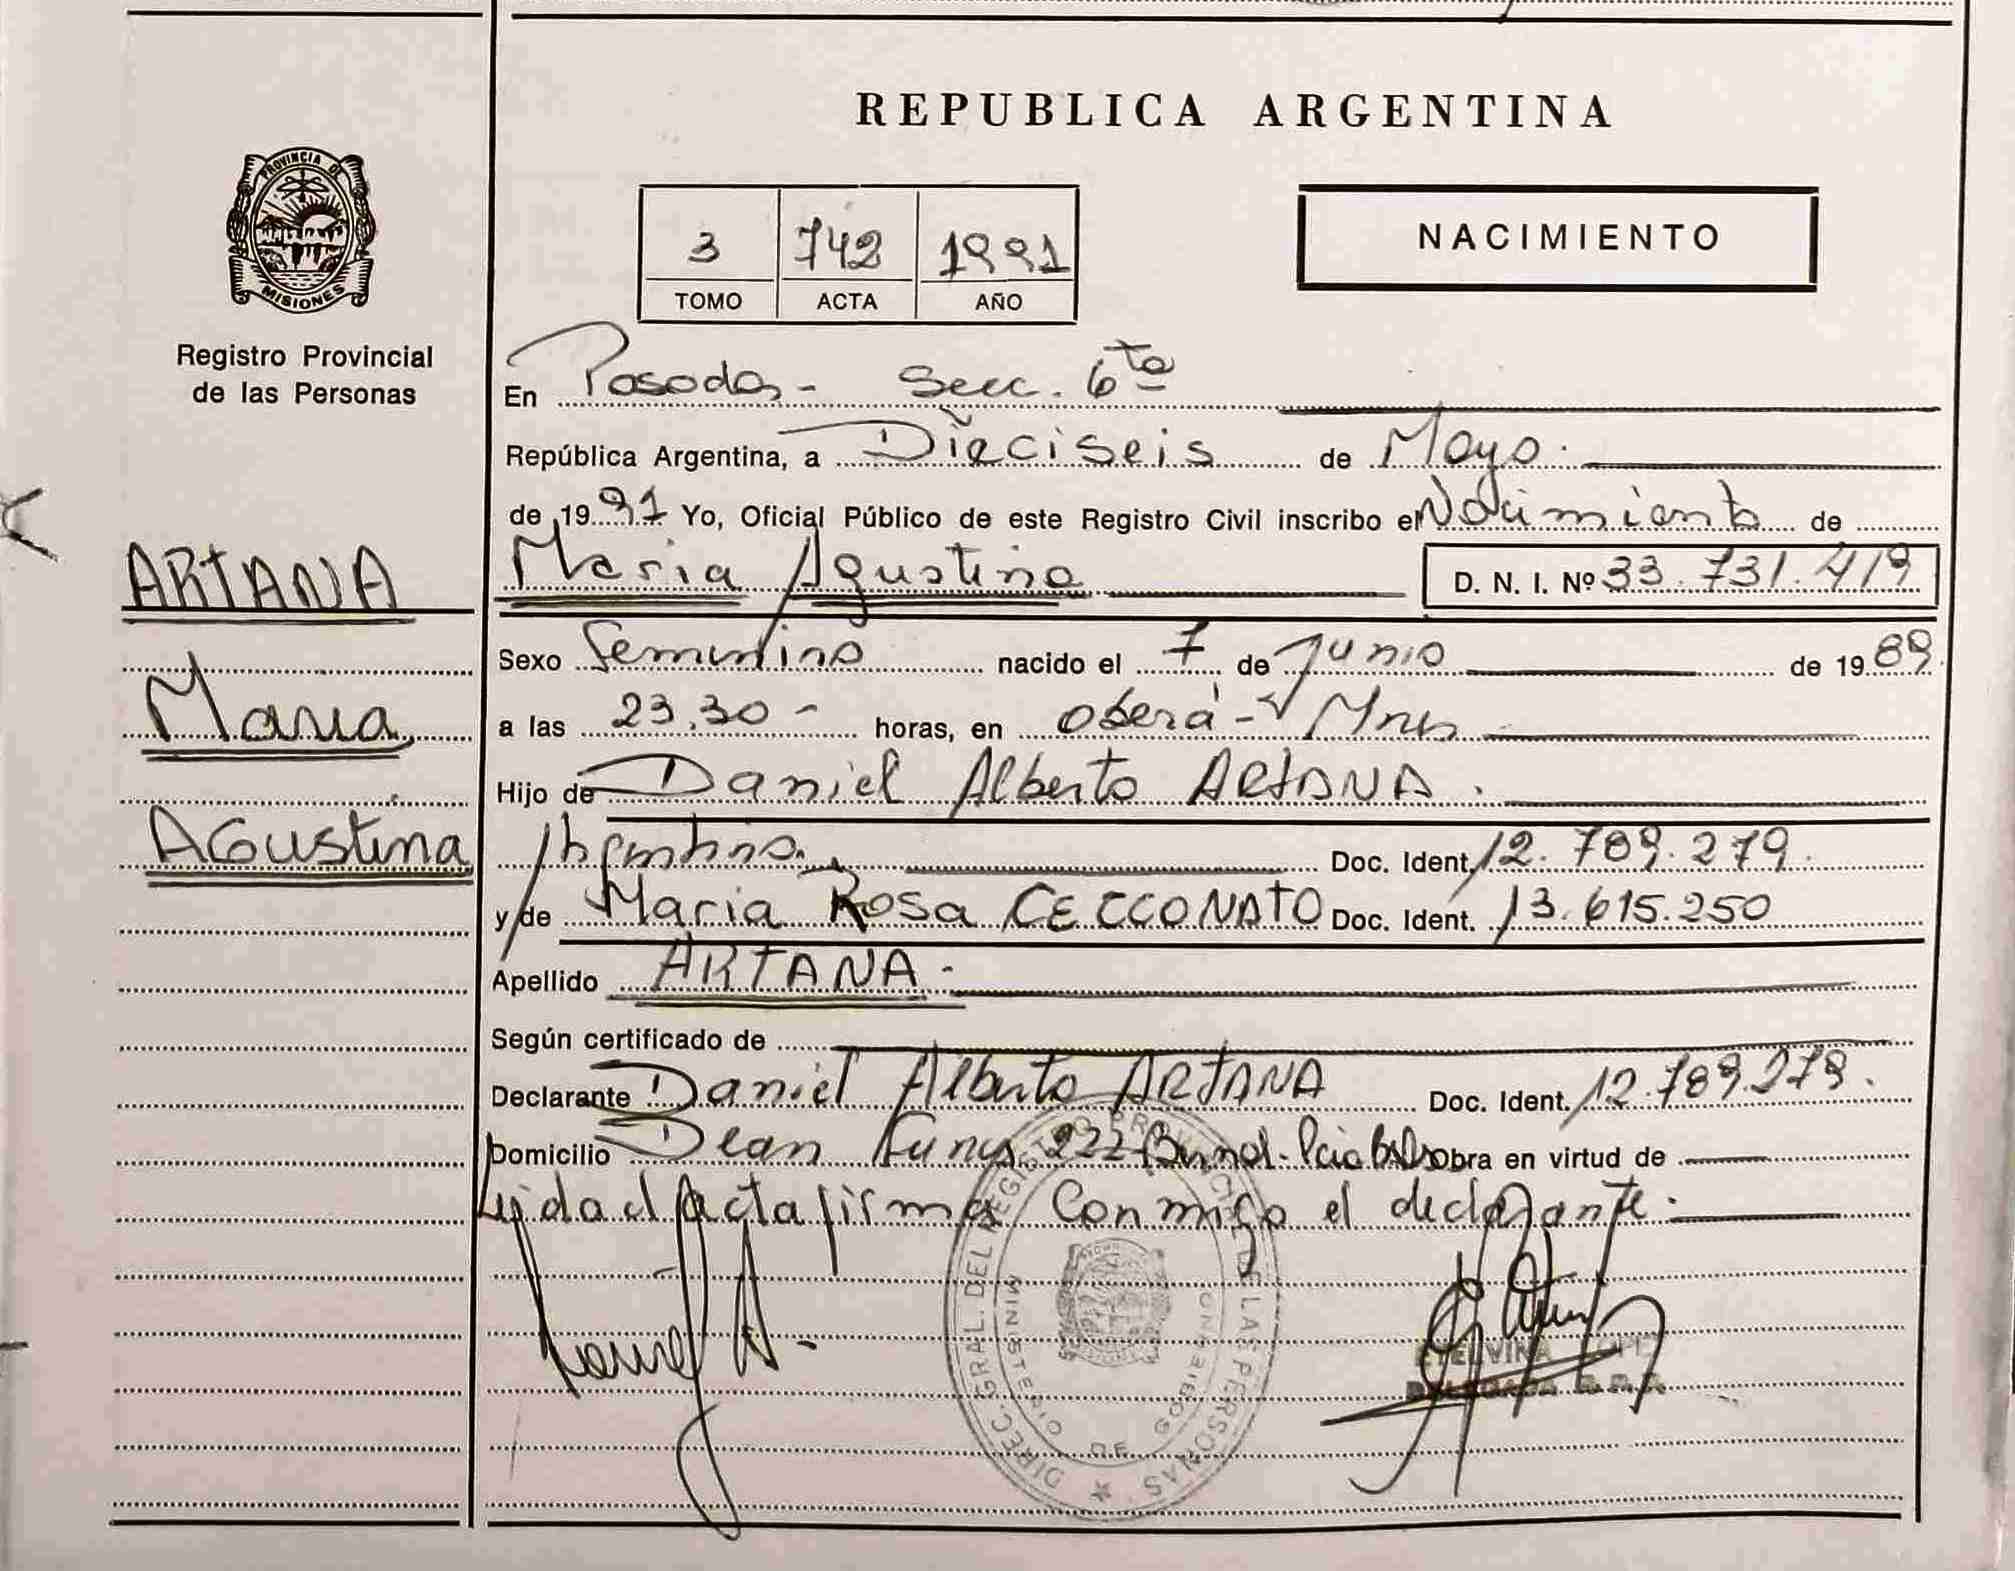 REPUBLICA ARGENTINA
PROVINCIA DE
MISIONES
Registro Provincial
de las Personas
3 742 1991
TOMO ACTA AÑO
NACIMIENTO
En Posadas - Secc. 6ta
República Argentina, a Dieciseis de Mayo.
de 1991 Yo, Oficial Público de este Registro Civil inscribo el Nacimiento de
ARTANA
Maria Agustina D. N. I. Nº 33.731.419
Sexo Femenino nacido el 7 de Junio de 1989.
Maria
a las 23.30 - horas, en Oberá - Mnes
Hijo de Daniel Alberto ARTANA.
Agustina
Argentino. Doc. Ident. 12.789.279.
y de Maria Rosa CECCONATO Doc. Ident. 13.615.250
Apellido ARTANA -
Según certificado de
Declarante Daniel Alberto ARTANA Doc. Ident. 12.789.279.
Domicilio Dean Funes 222 Bernal - Pcia Bs As Obra en virtud de
Leida el acta firma conmigo el declarante.
DIREC. GRAL. DEL REGISTRO PROVINCIAL DE LAS PERSONAS
MINISTERIO DE GOBIERNO
ETELVINA
DELEGADA R.P.P.